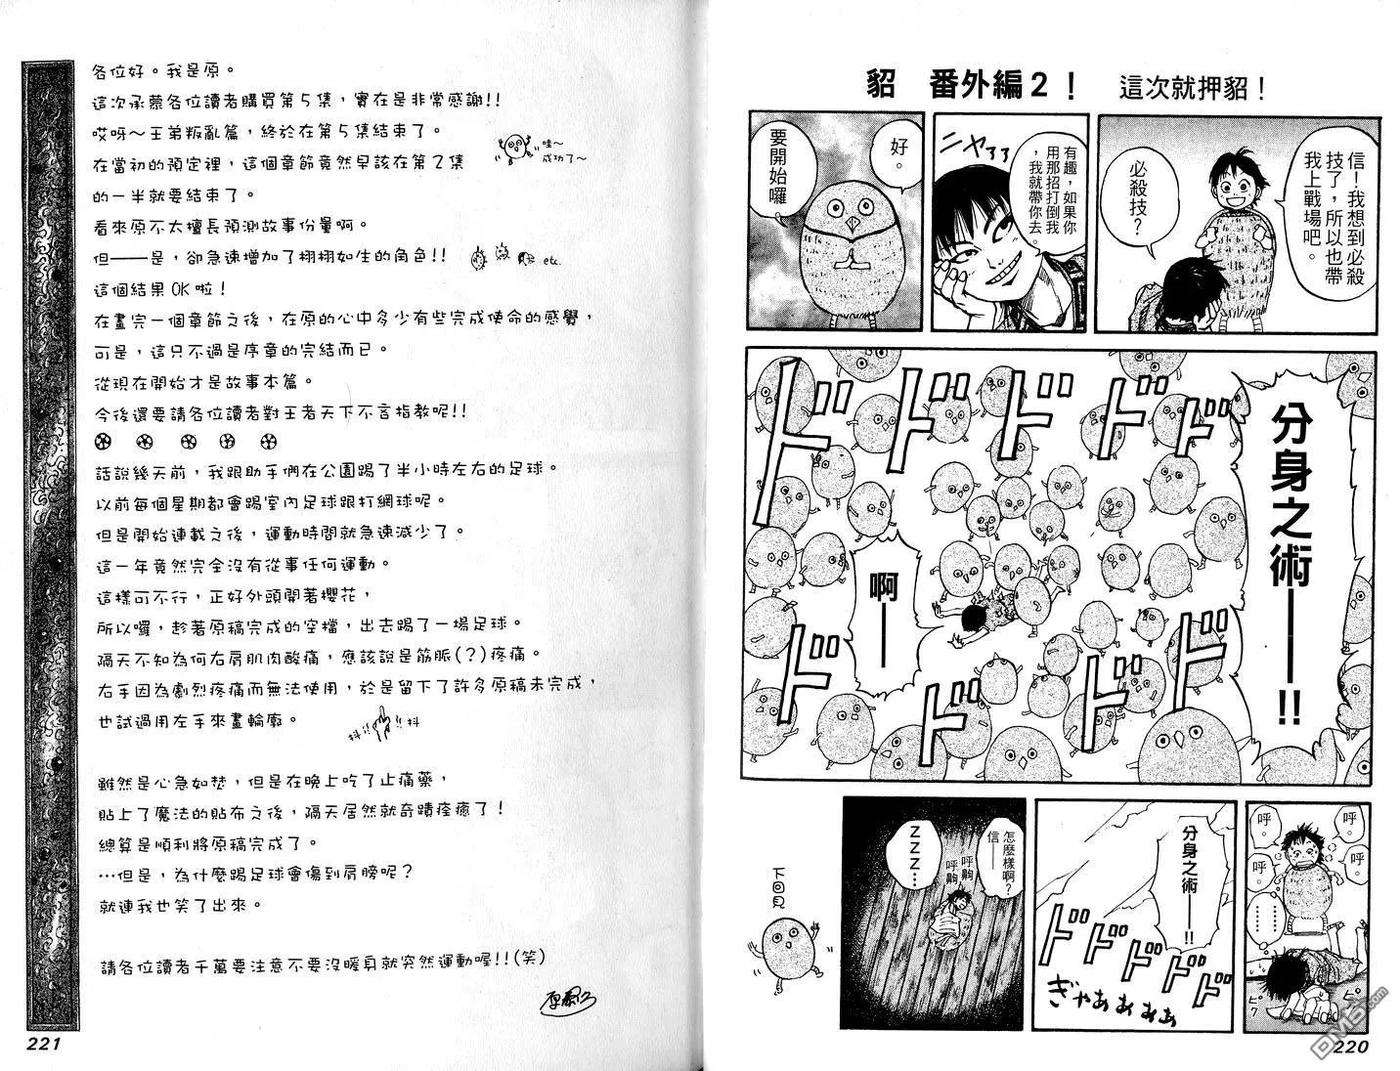 貂 番外編2！ 這次就押貂！
信！我想到必殺
技了，所以也帶
我上戰場吧。
必殺技？
有趣，如果你
用那招打倒我
，我就帶你去。
ニヤァァ
好。
要開始囉。
分身之術——!!
啊——
ドドドドド
ドドドド
呼。
呼。
呼。
呼。
………
………
ピク
分身之術——!!
ドドドドド
ぎゃあぁぁぁぁ
怎麼樣啊？
信——
呼齁
呼齁
ZZZ…
下回見
220
各位好。我是原。
這次承蒙各位讀者購買第5集，實在是非常感謝!!
哎呀～王弟叛亂篇，終於在第5集結束了。
哇～
成功了～
在當初的預定裡，這個章節竟然早該在第2集
的一半就要結束了。
看來原不太擅長預測故事份量啊。
但——是，卻急速增加了栩栩如生的角色!!
etc.
這個結果OK啦！
在畫完一個章節之後，在原的心中多少有些完成使命的感覺，
可是，這只不過是序章的完結而已。
從現在開始才是故事本篇。
今後還要請各位讀者對王者天下不吝指教呢!!
話說幾天前，我跟助手們在公園踢了半小時左右的足球。
以前每個星期都會踢室內足球跟打網球呢。
但是開始連載之後，運動時間就急速減少了。
這一年竟然完全沒有從事任何運動。
這樣可不行，正好外頭開著櫻花，
所以囉，趁著原稿完成的空檔，出去踢了一場足球。
隔天不知為何右肩肌肉酸痛，應該說是筋脈(？)疼痛。
右手因為劇烈疼痛而無法使用，於是留下了許多原稿未完成，
也試過用左手來畫輪廓。
抖!!
!!抖
雖然是心急如焚，但是在晚上吃了止痛藥，
貼上了魔法的貼布之後，隔天居然就奇蹟痊癒了！
總算是順利將原稿完成了。
…但是，為什麼踢足球會傷到肩膀呢？
就連我也笑了出來。
請各位讀者千萬要注意不要沒暖身就突然運動喔!!(笑)
221